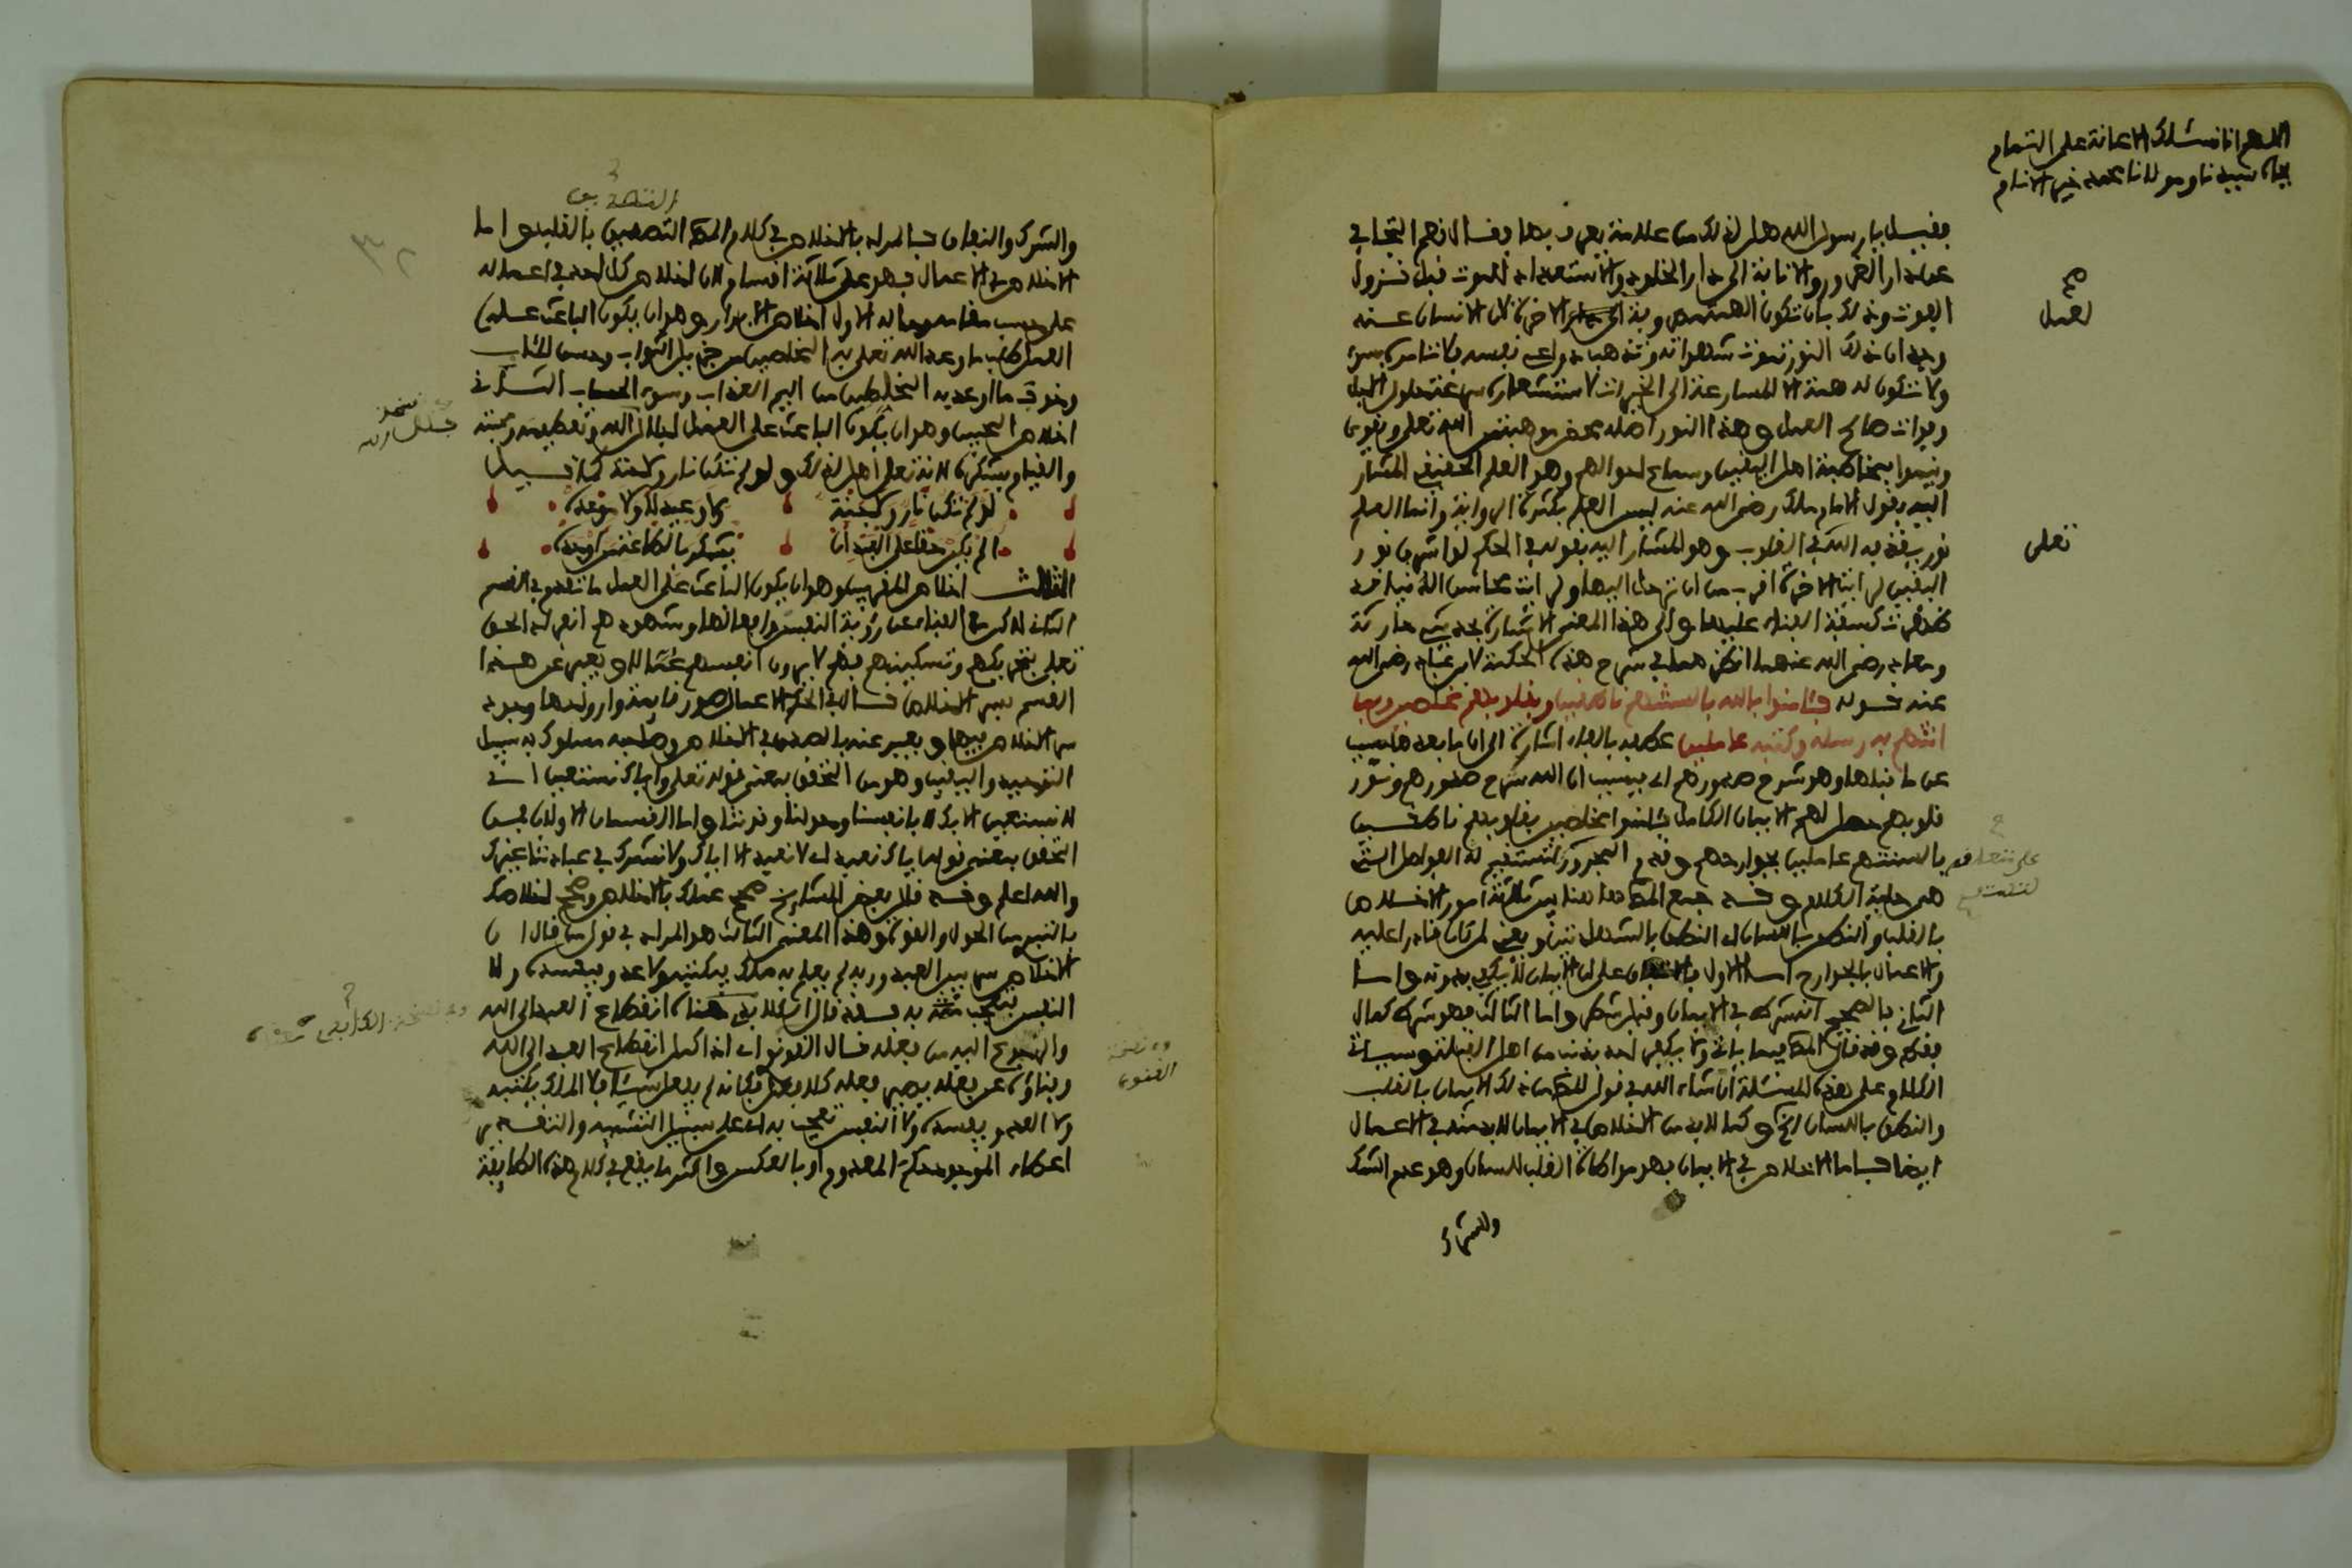 اللهم انا نسئلك الاعانة على التمام
بجاه سيدنا ومولانا محمد خير الانام
فقيل يا رسول الله هل لذلك من علامة يعرف بها فقال نعم التجافي
عن دار الغرور والانابة الى دار الخلود والاستعداد للموت قبل نزول
الموت وذلك بان تكون الاخرة لان الانسان عند
وجدان ذلك النور تموت شهواته وتذهب دواعي نفسه فلا تامره بسوء
ولا تكون له همة الا المسارعة الى الخيرات لاستشعاره سرعة حلول الاجل
وفوات صالح العمل وهذا النور اصله محض موهبة من الله تعلى ويقوى
وينموا بمخالطة اهل اليقين وسماع احوالهم وهو العلم الحقيقي المشار
اليه بقول الامام مالك رضي الله عنه ليس العلم بكثرة الرواية وانما العلم
نور يقذفه الله في القلوب وهو المشار اليه بقوله في الحكم لو اشرق نور
اليقين لرايت الاخرة اقرب من ان ترحل اليها ولرايت محاسن الدنيا قد
ظهرت كسفة الفناء عليها والى هذا المعنى الاشارة بحديثي حارثة
ومعاذ رضي الله عنهما انظرهما في شرح هذه الحكمة لابن عباد رضي الله
عنه قوله فئامنوا بالله بالسنتهم ناطقين وبقلوبهم مخلصين وبما
اتتهم به رسله وكتبه عاملين عطف بالفاء اشارة الى ان ما بعدها سبب
عن ما قبلها وهو شرح صدورهم اي بسبب ان الله شرح صدورهم ونور
قلوبهم حصل لهم الايمان الكامل فئامنوا مخلصين بقلوبهم ناطقين
بالسنتهم عاملين بجوارحهم وقدم المجرور لتستقيم له الفواصل التي
هي حلية الكلام وقد جمع المص هنا بين ثلاثة امور الاخلاص
بالقلب والنطق باللسان اي النطق بالشهادتين يعني لمن كان قادرا عليه
والاعمال بالجوارح اما الاول على ان الايمان لا يكفي بدونه واما
الثاني فالصحيح انه شرط في الايمان وقيل شطر واما الثالث فهو شرط كمال
فقط وقد قال المص فيما ياتي ولا يكفر احد بذنب من اهل القبلة وسياتي
الكلام على هذه المسئلة ان شاء الله في قول المص من ذلك الايمان بالقلب
والنطق باللسان الخ وكما لا بد من الاخلاص في الايمان لا بد منه في الاعمال
ايضا فاما الاخلاص في الايمان فهو مواطاة القلب اللسان وهو عدم الشك
والشرك
صح
لعمل
تعلى
والشرك والنفاق فالمراد بالاخلاص في كلام المص التصديق بالقلب واما
الاخلاص في الاعمال فهو على ثلاثة اقسام لان اخلاص كل احد في اعماله
على حسب مقامه وحاله الاول اخلاص الابرار وهو ان يكون الباعث على
العمل طلب ما وعد الله تعلى به المخلصين من جزيل الثواب وحسن المئاب
وخوف ما اوعد به المخلطين من اليم العذاب وسوء الحساب الثاني
اخلاص المحبين وهو ان يكون الباعث على العمل اجلال الله وتعظيمه ومحبته
والقيام بشكره لانه تعلى اهل لذلك ولو لم تكن نار ولا جنة كما قيل
لو لم تكن نار ولا جنة ولا وعيد لا ولا موعد
الم يكن حقا على العبد ان يشكر بالطاعة من اوجده
الثالث اخلاص المقربين وهو ان يكون الباعث على العمل ما تقدم في القسم
الثاني لكن مع الفناء عن رؤية النفس وافعالها وشهودهم انفراد الحق
تعلى بتحريكهم وتسكينهم فهم لا يرون انفسهم عمالا ويعبر عن هذا
القسم بسر الاخلاص قال في الحكم الاعمال صور قايمة وارواحها وجود
سر الاخلاص فيها ويعبر عنه بالصدق في الاخلاص وصاحبه مسلوك به سبيل
التوحيد واليقين وهو من التحقق بمعنى قوله تعلى واياك نستعين اي
لا نستعين الا بك لا بانفسنا وحولنا وقوتنا واما القسمان الاولان فمن
التحقق بمعنى قوله اياك نعبد اي لا نعبد الا اياك ولا نشرك في عبادتنا غيرك
والله اعلم وقد قال بعض المشايخ صحح عملك بالاخلاص وصحح اخلاصك
بالتبري من الحول والقوة وهذا المعنى الثالث هو المراد في قول من قال ان
الاخلاص سر بين العبد وربه لم يعلم به ملك فيكتبه ولا عدو فيفسده ولا
النفس فتعجب به فقد قال انقطاع العبد الى الله
والرجوع اليه من فعله قال القونوي اي اذا كمل انقطاع العبد الى الله
وفناؤه عن فعله يصير فعله كلا فعل فكانه لم يفعل شيئا فلا الملك يكتبه
ولا العدو يفسده ولا النفس تعجب به اي على سبيل التشبيه والتقدير
اعطاء الموجود حكم المعدوم او بالعكس واكثر ما يقع في كلام هذه الطايفة
التصديق